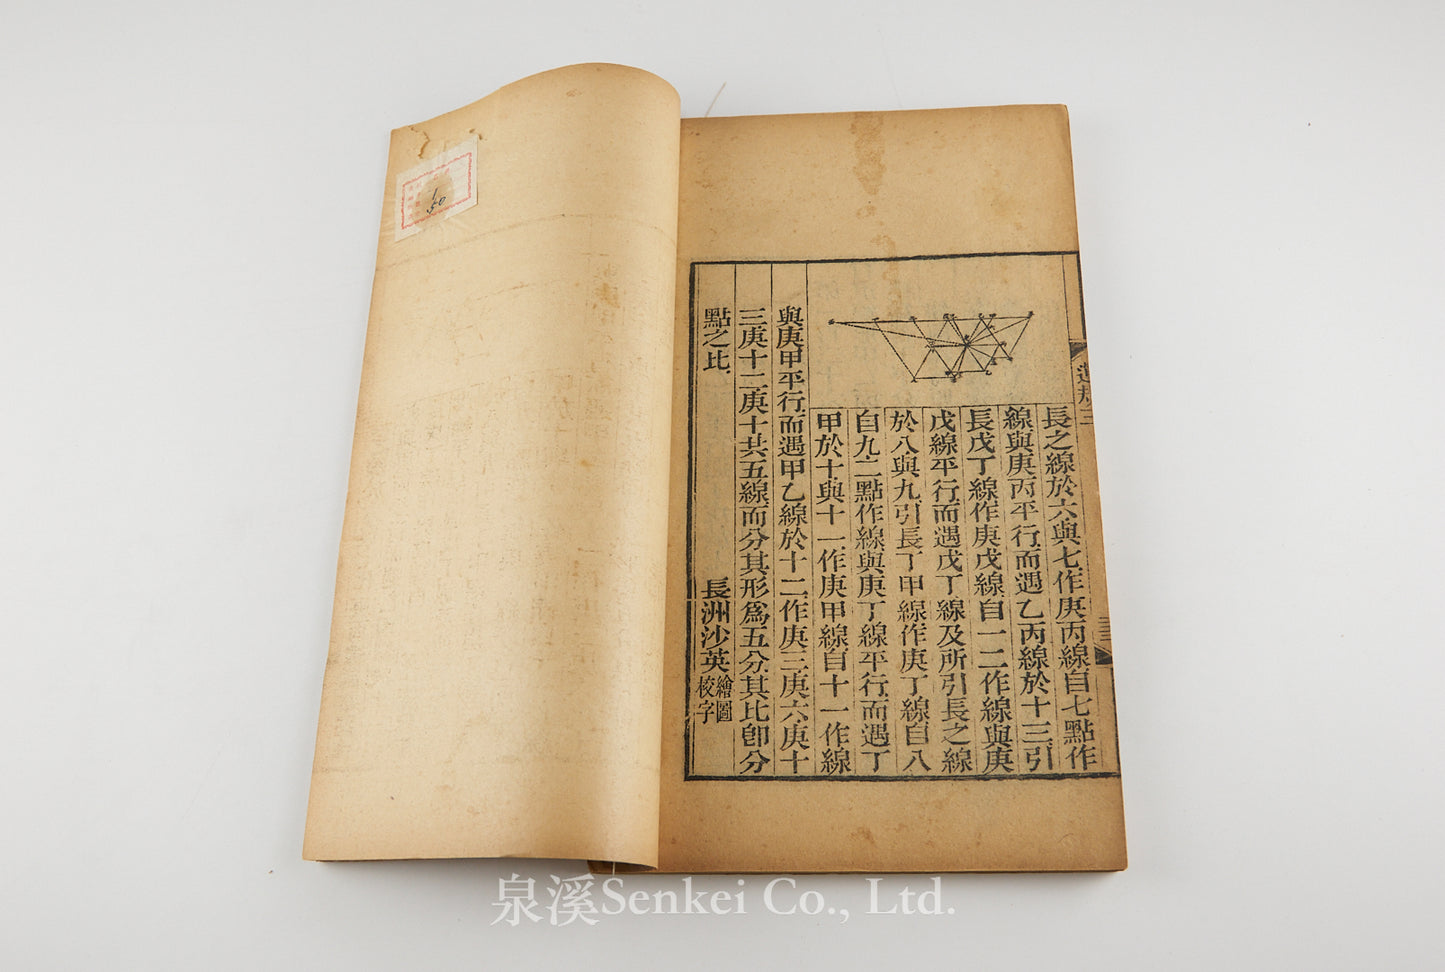 長之線於六與七作庚丙線自七點作
線與庚丙平行而遇乙丙線於十三引
長戊丁線作庚戊線自一二作線與庚
戊線平行而遇戊丁線及所引長之線
於八與九引長丁甲線作庚丁線自八
自九二點作線與庚丁線平行而遇丁
甲於十與十一作庚甲線自十一作線
與庚甲平行而遇甲乙線於十二作庚三庚六庚十
三庚十二庚十共五線而分其形爲五分其比卽分
點之比
長洲沙英繪圖校字
1
50
泉溪Senkei Co., Ltd.